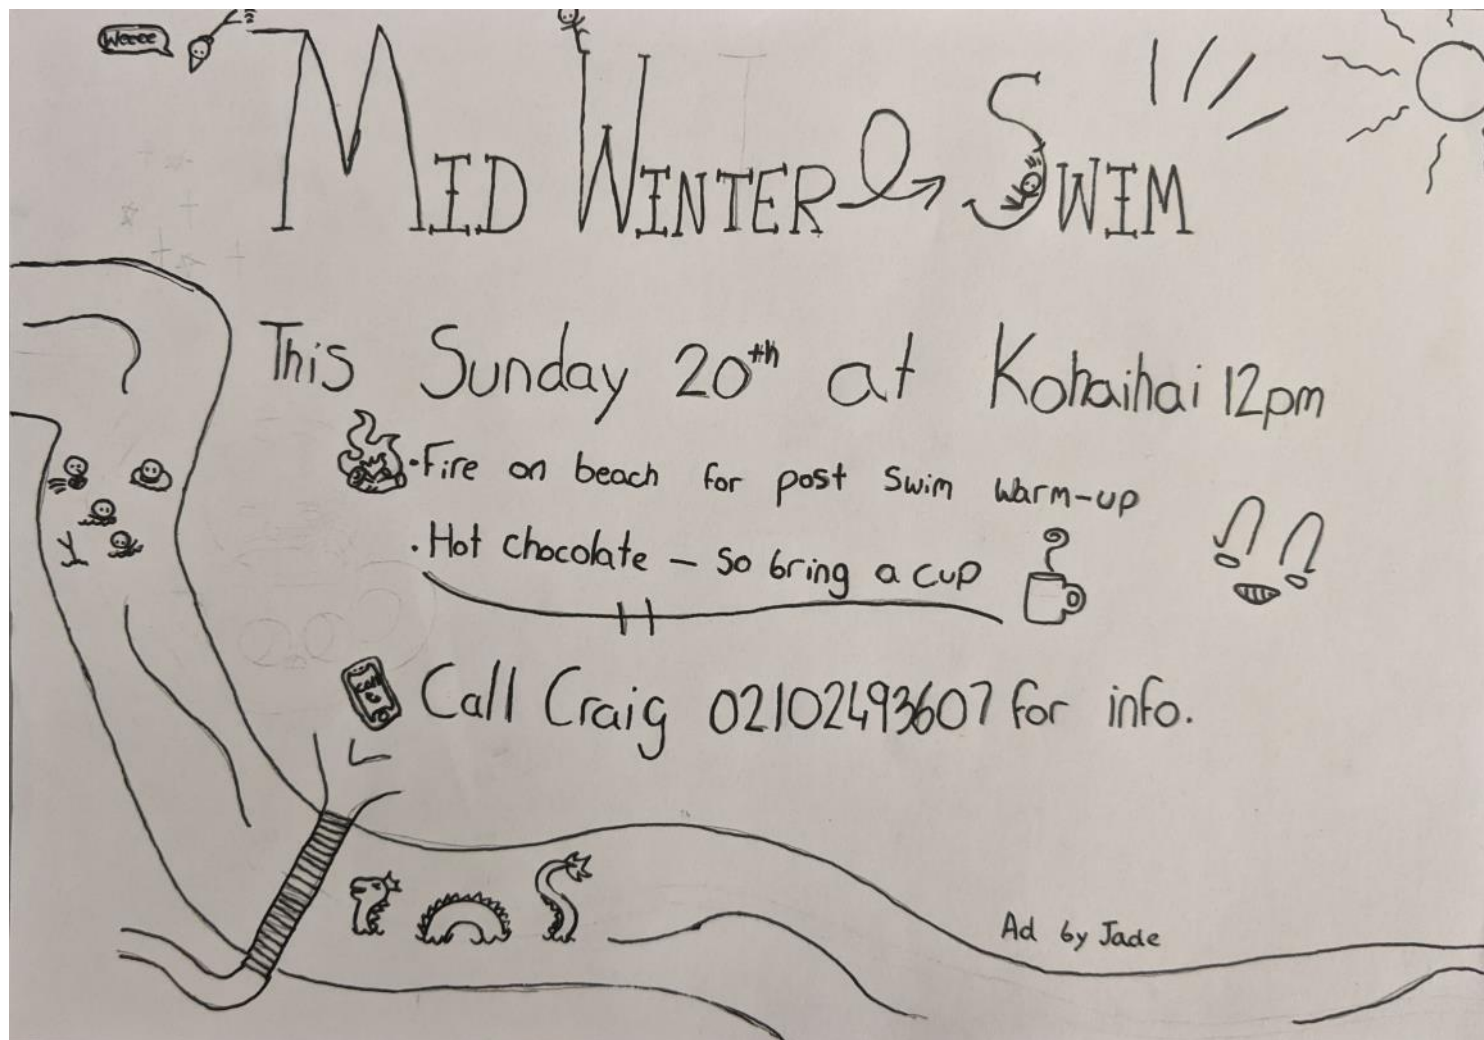 Weeee
MID WINTER SWIM
This Sunday 20th at Kohaihai 12pm
· Fire on beach for post swim warm-up
· Hot chocolate – so bring a cup
Call Craig 02102493607 for info.
Ad by Jade